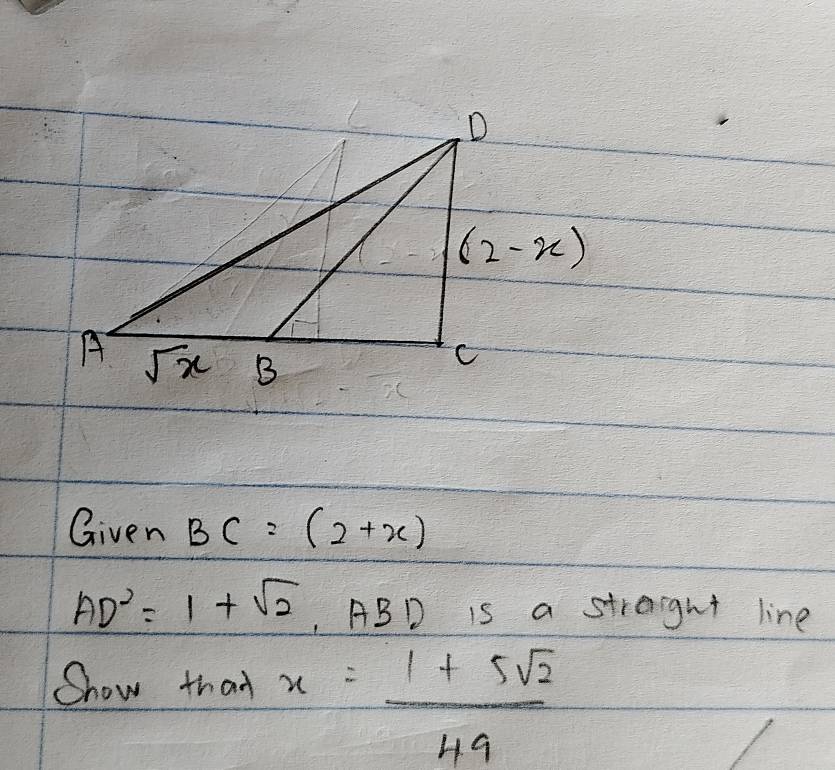 D
(2-x)
A √x B C
Given BC = (2+x)
AD² = 1 + √2, ABD is a straight line
Show that x = 1 + 5√2
49